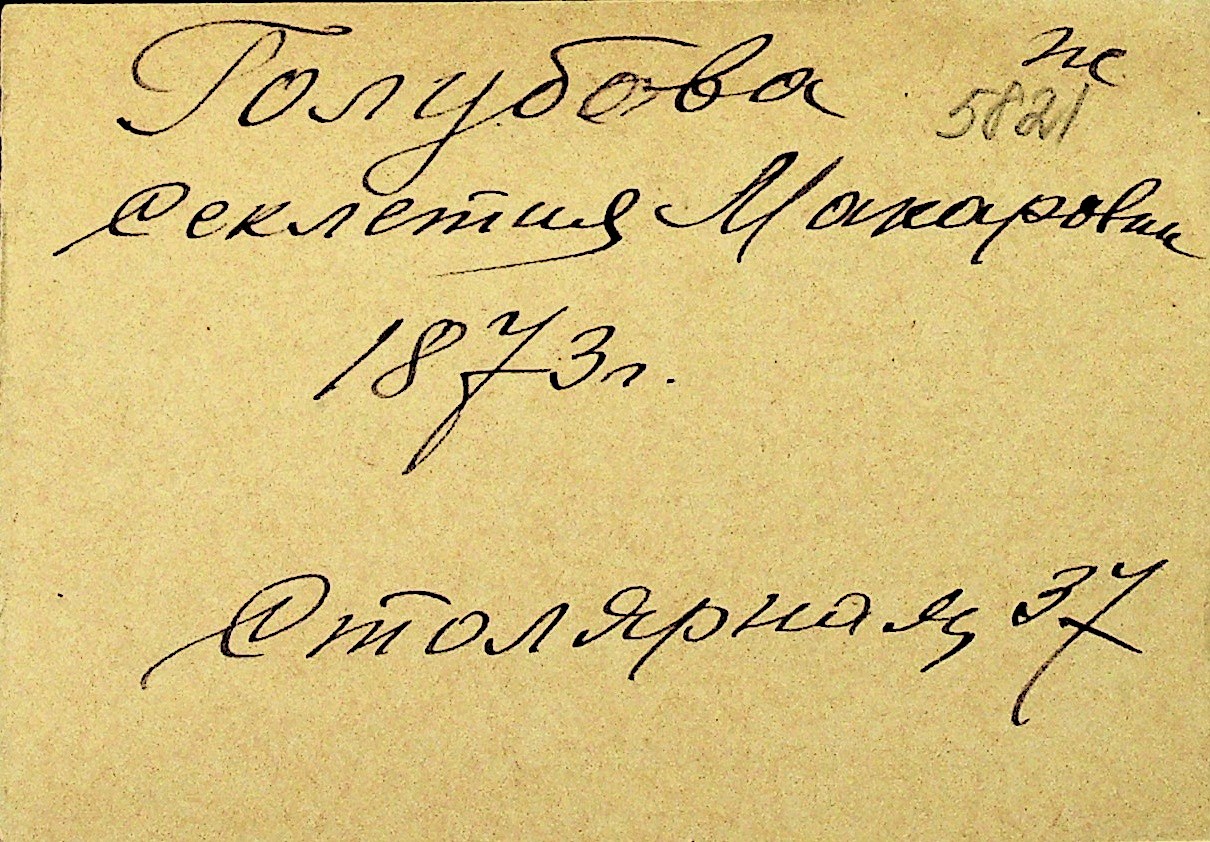 Голубова
не
5821
Секлетия Макаровн
1873г.
Столярная, 37